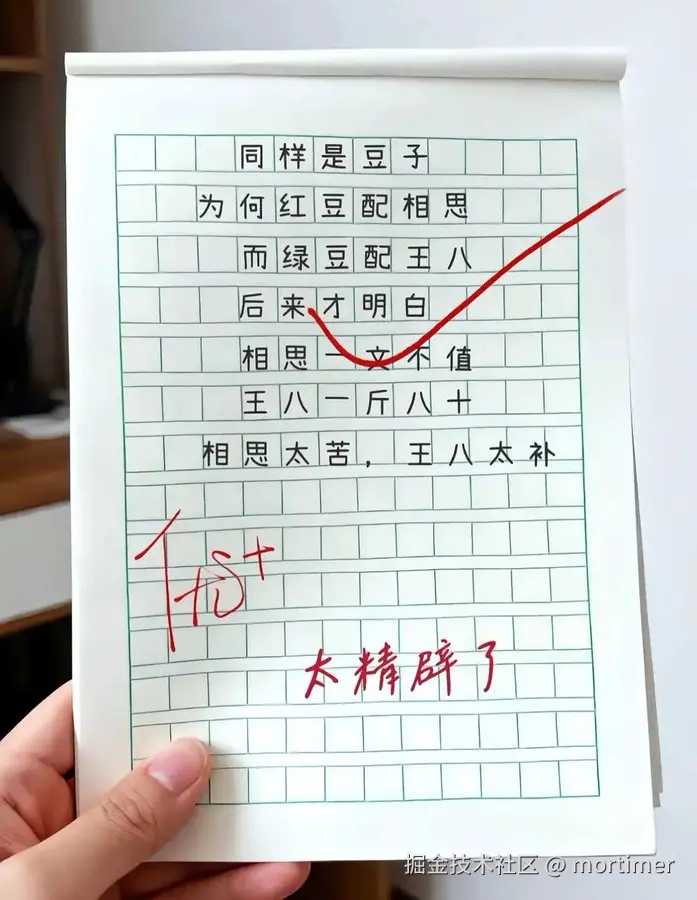 同样是豆子
为何红豆配相思
而绿豆配王八
后来才明白
相思一文不值
王八一斤八十
相思太苦，王八太补
优+
太精辟了
掘金技术社区 @ mortimer